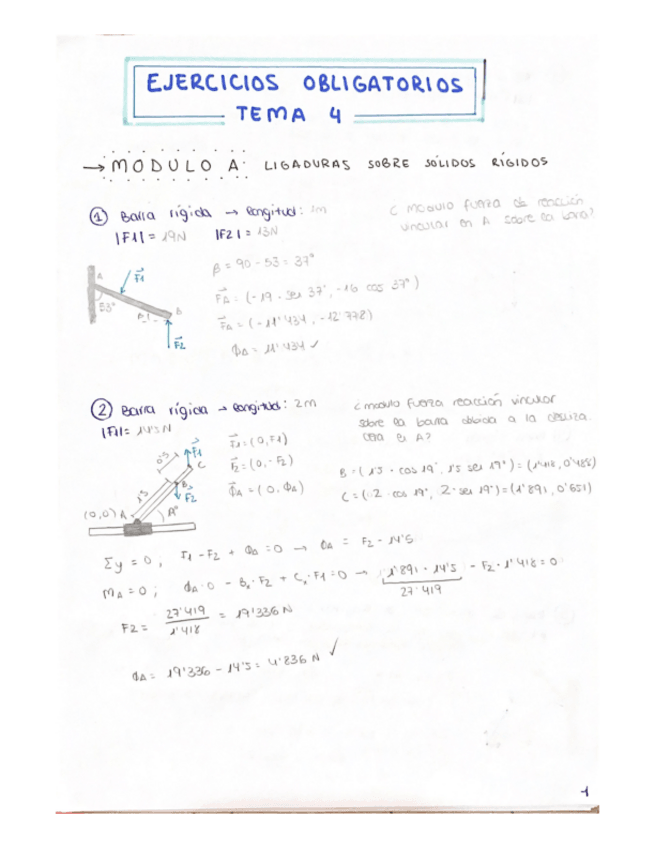 EJERCICIOS OBLIGATORIOS
TEMA 4
→ MODULO A: LIGADURAS SOBRE SÓLIDOS RÍGIDOS
① Barra rígida → longitud: 1m
|F1| = 19N |F2| = 13N
¿ modulo fuerza de reacción
vincular en A sobre la barra?
A
53°
F1
B
F2
β = 90 - 53 = 37°
FA = (-19 · sen 37°, -16 cos 37°)
FA = (-11'434, -12'778)
ΦA = 11'434 ✓
② Barra rígida → longitud: 2m
|F1| = 14'5N
¿ modulo fuerza reacción vincular
sobre la barra debida a la desliza
dera en A?
0'5
F1
C
1'5
B
F2
(0,0) A
F1 = (0, F1)
F2 = (0, -F2)
ΦA = (0, ΦA)
B = (1'5 · cos 19°, 1'5 sen 19°) = (1'418, 0'488)
C = (2 · cos 19°, 2 · sen 19°) = (1'891, 0'651)
Σy = 0, F1 - F2 + ΦA = 0 → ΦA = F2 - 14'5
MA = 0; ΦA · 0 - Bx · F2 + Cx · F1 = 0 → 1'891 · 14'5 - F2 · 1'418 = 0
27'419
F2 = 27'419 / 1'418 = 19'336 N
ΦA = 19'336 - 14'5 = 4'836 N ✓
1